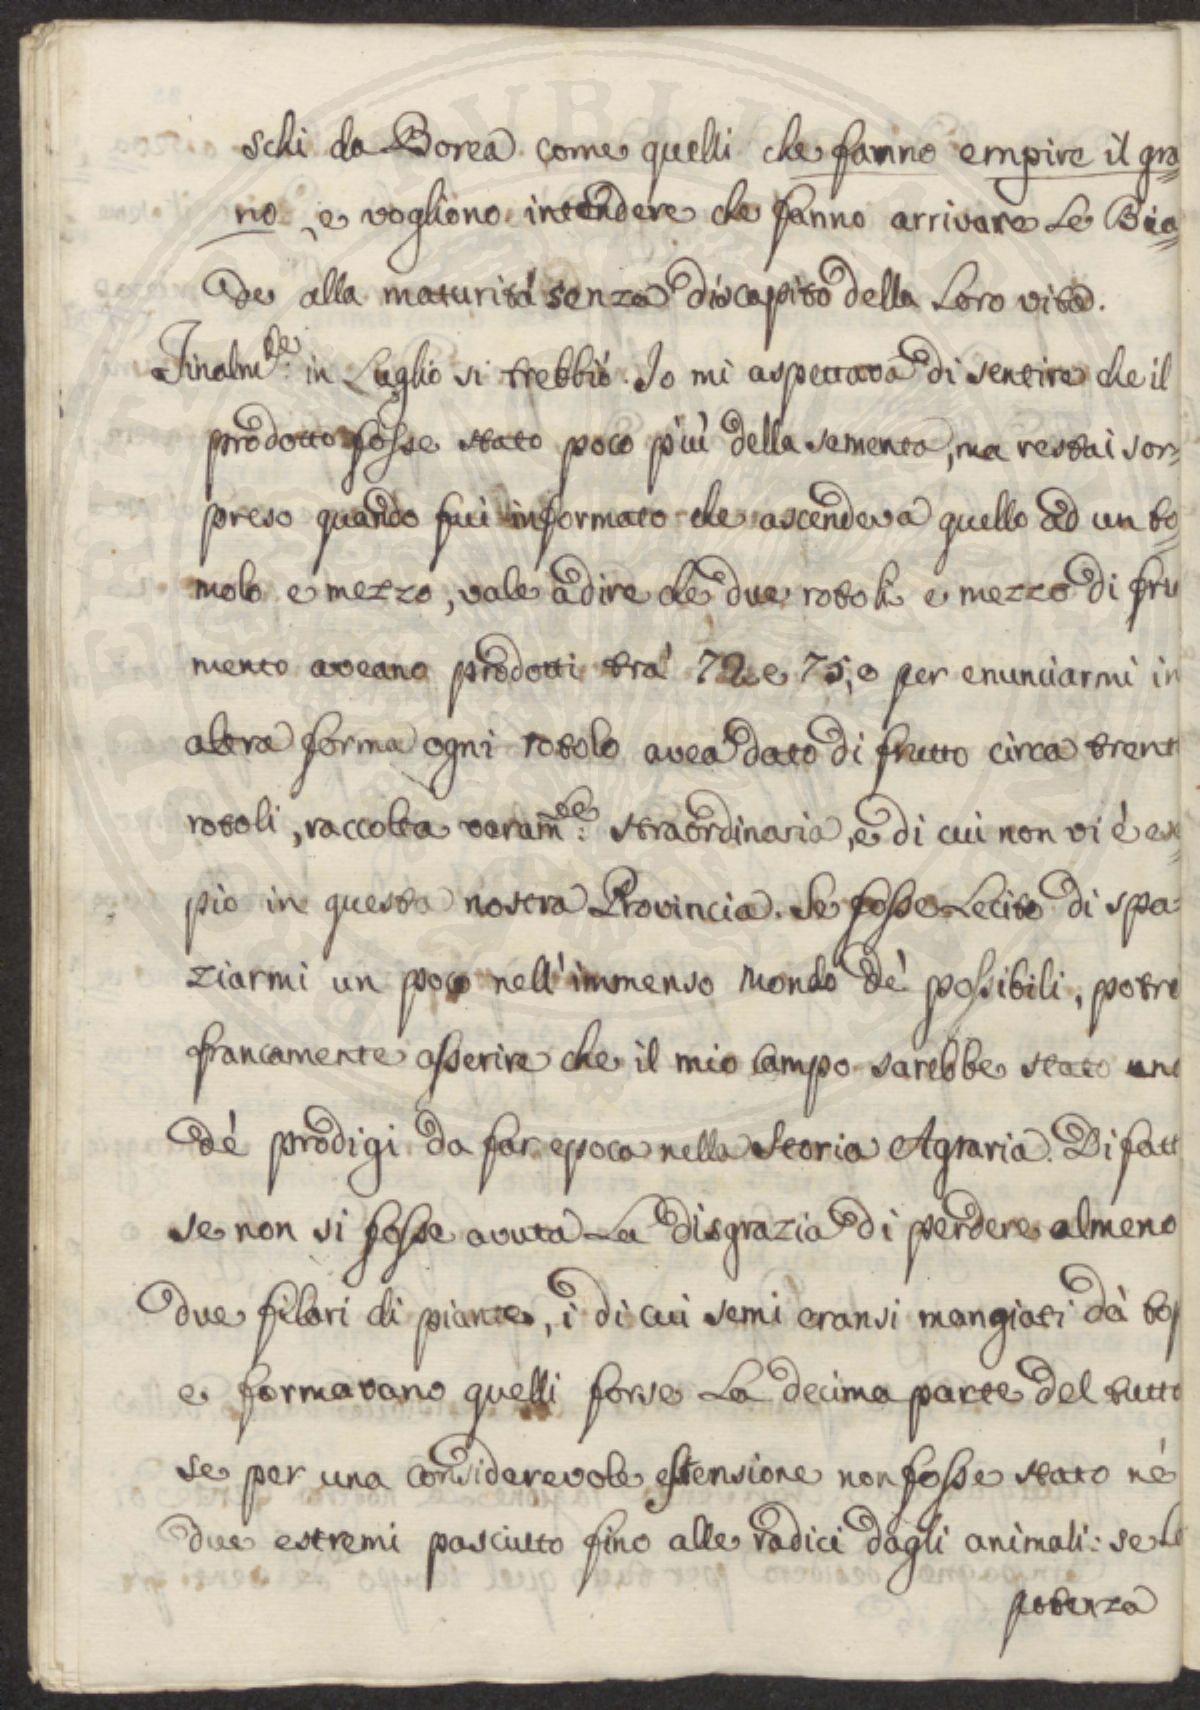 schi da Borea come quelli che fanno empire il gra=
no, e vogliono intendere che fanno arrivare le Bia=
de alla maturità senza discapito della loro vita.
Finalm.te in Luglio si trebbiò. Io mi aspettava di sentire che il
prodotto fosse stato poco più della sementa, ma restai sor=
preso quando fui informato che ascendeva quello ad un to=
molo e mezzo, vale a dire che due rotoli e mezzo di fru
mento aveano prodotti trà 72 e 75, o per enunciarmi in
altra forma ogni rotolo avea dato di frutto circa trent
rotoli, raccolta veram.te straordinaria, e di cui non vi è es
pio in questa nostra Provincia. Se fosse lecito di spa=
ziarmi un poco nell'immenso Mondo dè possibili, potre
francamente asserire che il mio campo sarebbe stato uno
dè prodigi da far epoca nella Storia Agraria. Di fatt
se non si fosse avuta la disgrazia di perdere almeno
due filari di piante, i di cui semi eransi mangiati dà top
e formavano quelli forse la decima parte del tutto
se per una considerevole estensione non fosse stato nè
due estremi pasciutto fino alle radici dagli animali: se la
potenza
SPE